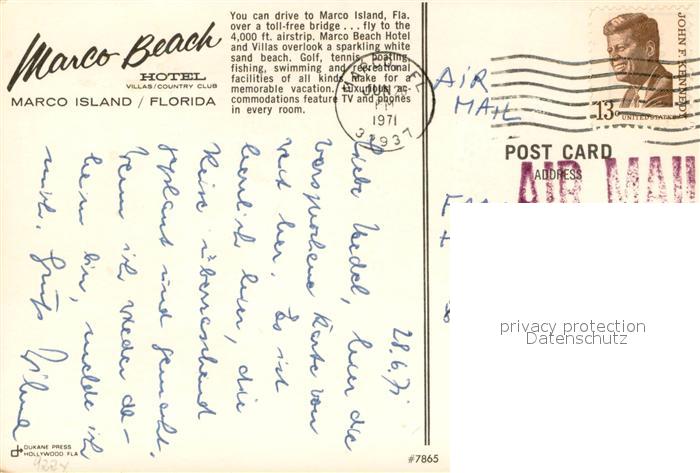 Marco Beach
HOTEL
VILLAS/COUNTRY CLUB
MARCO ISLAND / FLORIDA
You can drive to Marco Island, Fla.
over a toll-free bridge . . . fly to the
4,000 ft. airstrip. Marco Beach Hotel
and Villas overlook a sparkling white
sand beach. Golf, tennis, boating,
fishing, swimming and recreational
facilities of all kinds make for a
memorable vacation. Luxurious ac-
commodations feature TV and phones
in every room.
JUN 28
PM
1971
32937
AIR
MAIL
JOHN F. KENNEDY
13c
UNITED STATES
POST CARD
ADDRESS
AIR MAIL
28.6.71
Liebe Medel, hier die
versprochene Karte von
hier. Es ist
herrlich hier, die
Reise überraschend
geplant und gemacht.
Wenn ich wieder da-
heim bin, melde ich
mich. Gruß
privacy protection
Datenschutz
DUKANE PRESS
HOLLYWOOD, FLA.
#7865